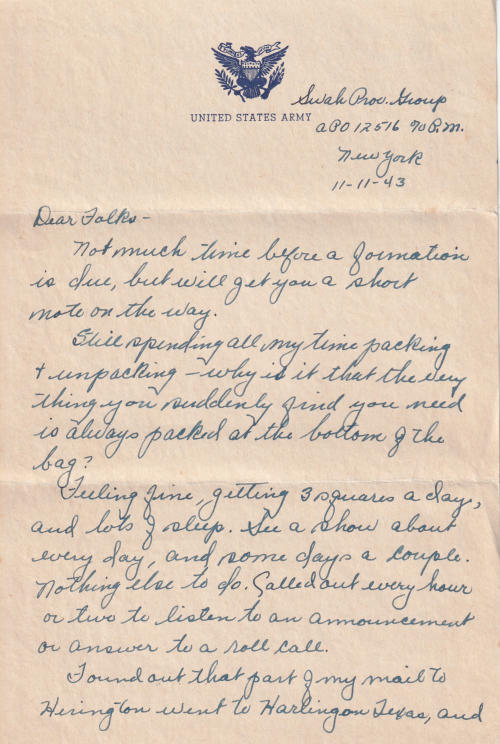 UNITED STATES ARMY
Swah Prov. Group
APO 12516 % P.M.
New York
11-11-43
Dear Folks -
Not much time before a formation
is due, but will get you a short
note on the way.
Still spending all my time packing
+ unpacking - why is it that the very
thing you suddenly find you need
is always packed at the bottom of the
bag?
Feeling fine, getting 3 squares a day,
and lots of sleep. See a show about
every day, and some days a couple.
Nothing else to do. Called out every hour
or two to listen to an announcement
or answer to a roll call.
Found out that part of my mail to
Herington went to Harlingon Texas, and